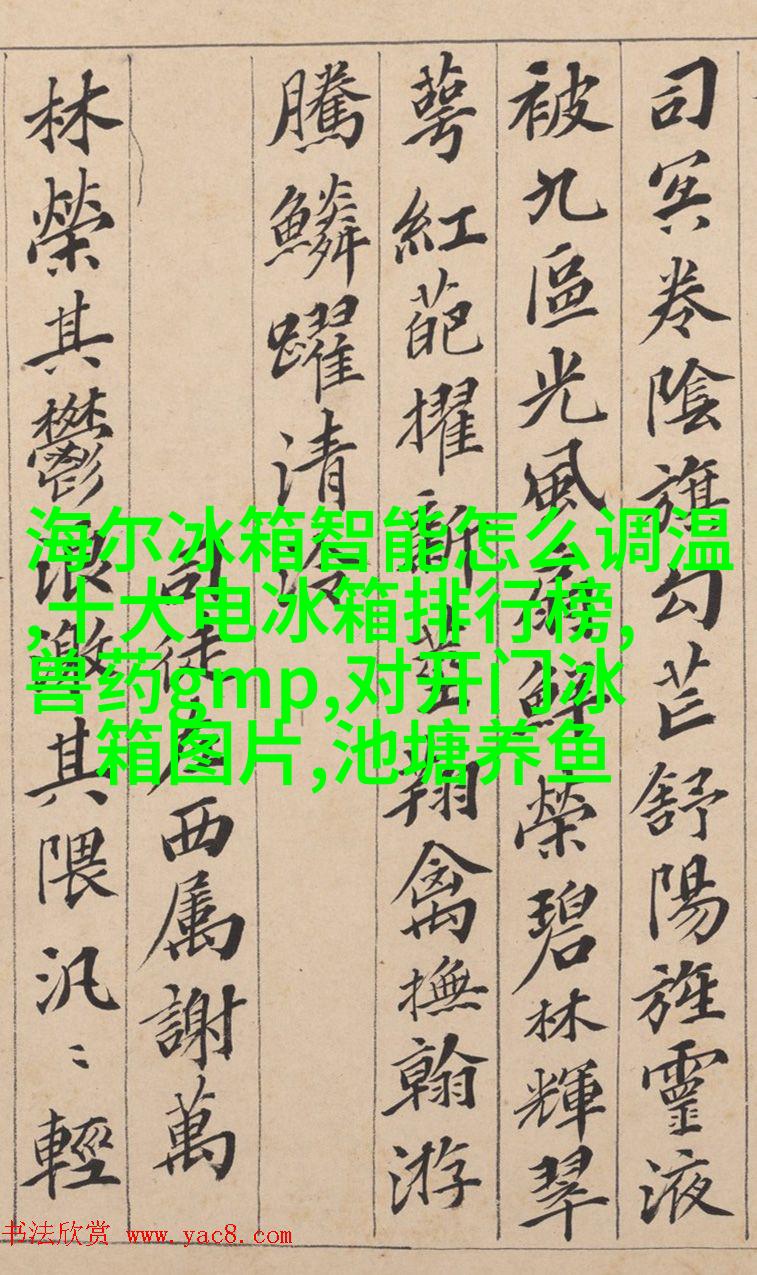 司冥卷陰旗勾芒舒陽旌靈液
被九區光風扇鮮榮碧林輝翠
萼紅葩擢新莖翔禽撫翰游
騰鱗躍清泠
司徒左西属謝萬
林榮其鬱浪激其隈汎〻輕
海尔冰箱智能怎么调温
,十大电冰箱排行榜,
兽药gmp,对开门冰
箱图片,池塘养鱼
书法欣赏 www.yac8.com